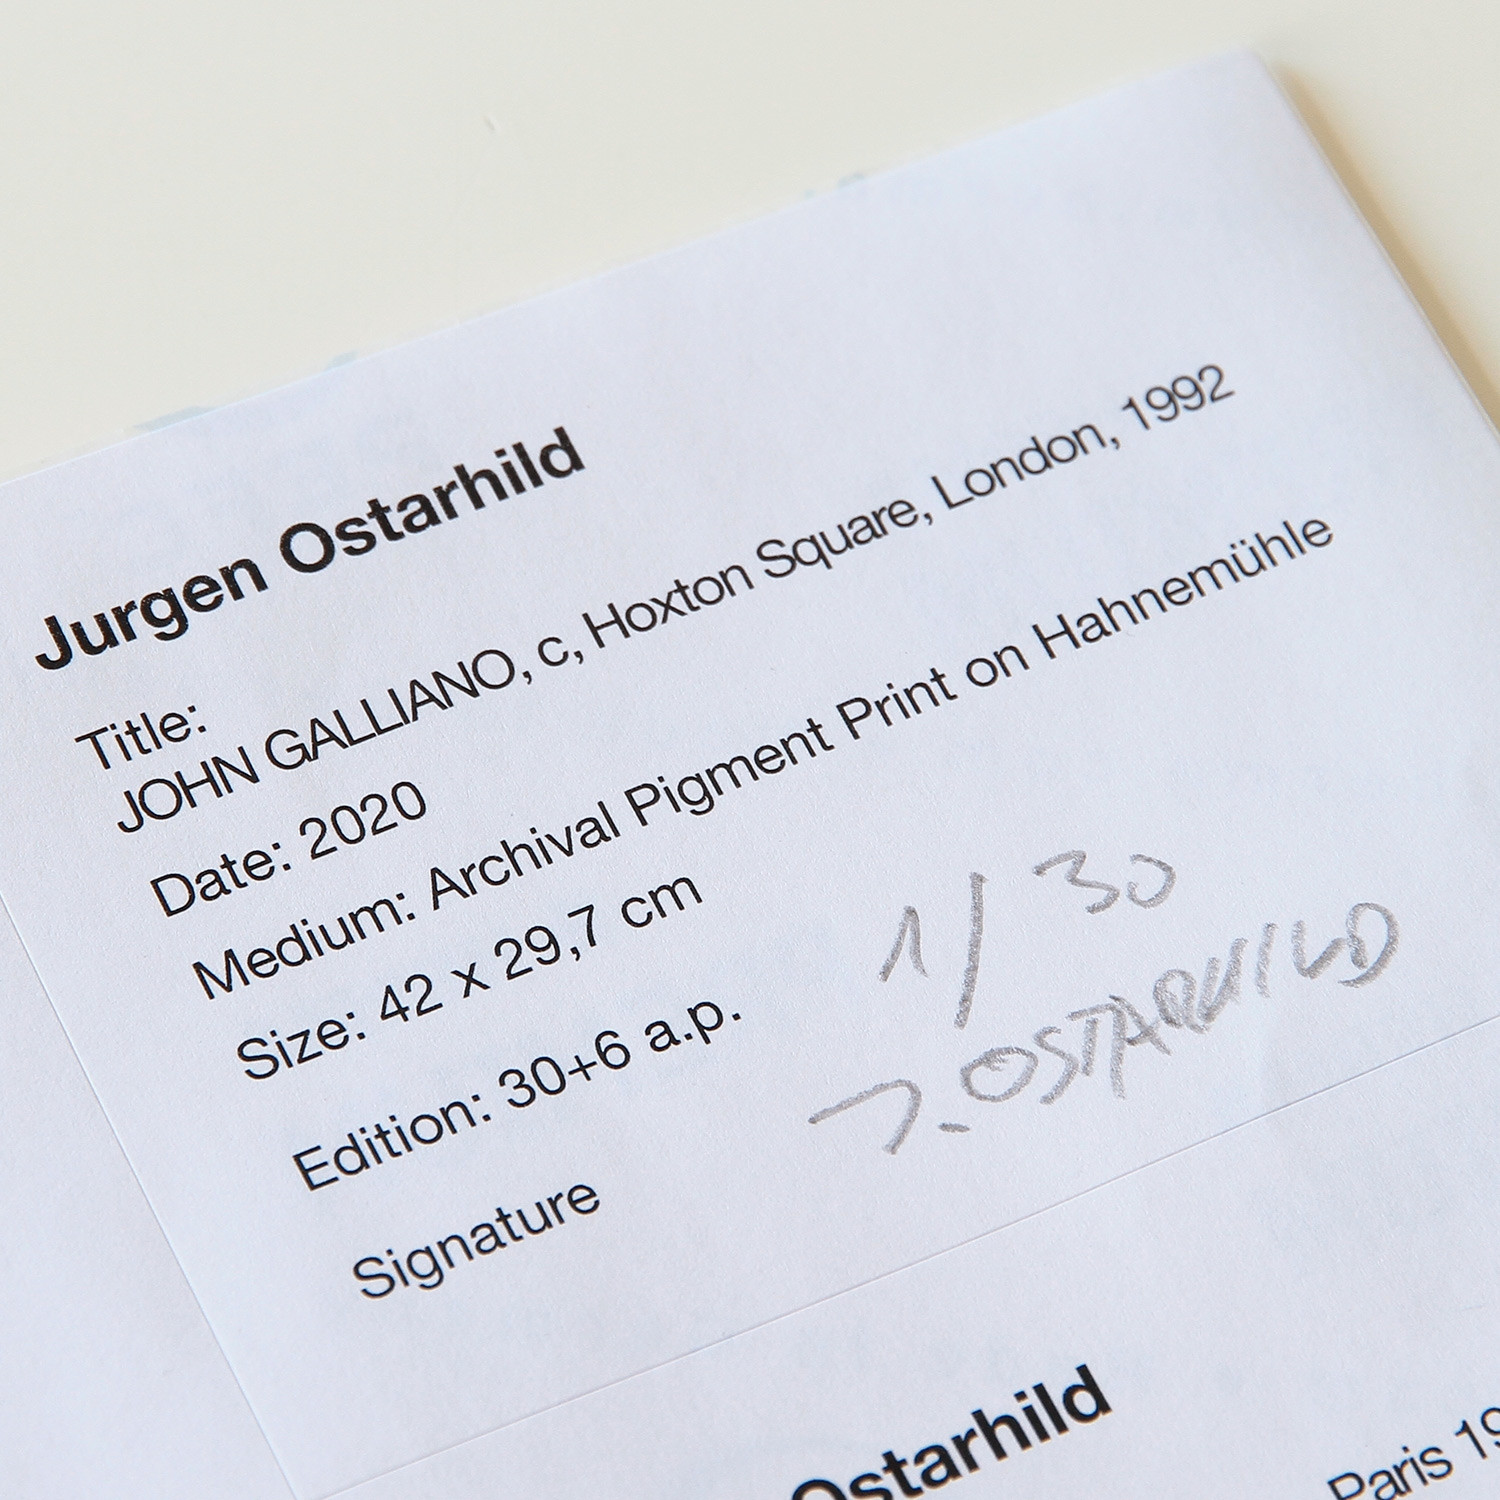 Jurgen Ostarhild
Title:
JOHN GALLIANO, c, Hoxton Square, London, 1992
Date: 2020
Medium: Archival Pigment Print on Hahnemühle
Size: 42 x 29,7 cm
Edition: 30+6 a.p.
1/30
Signature
J. OSTARHILD
Ostarhild
Paris 19